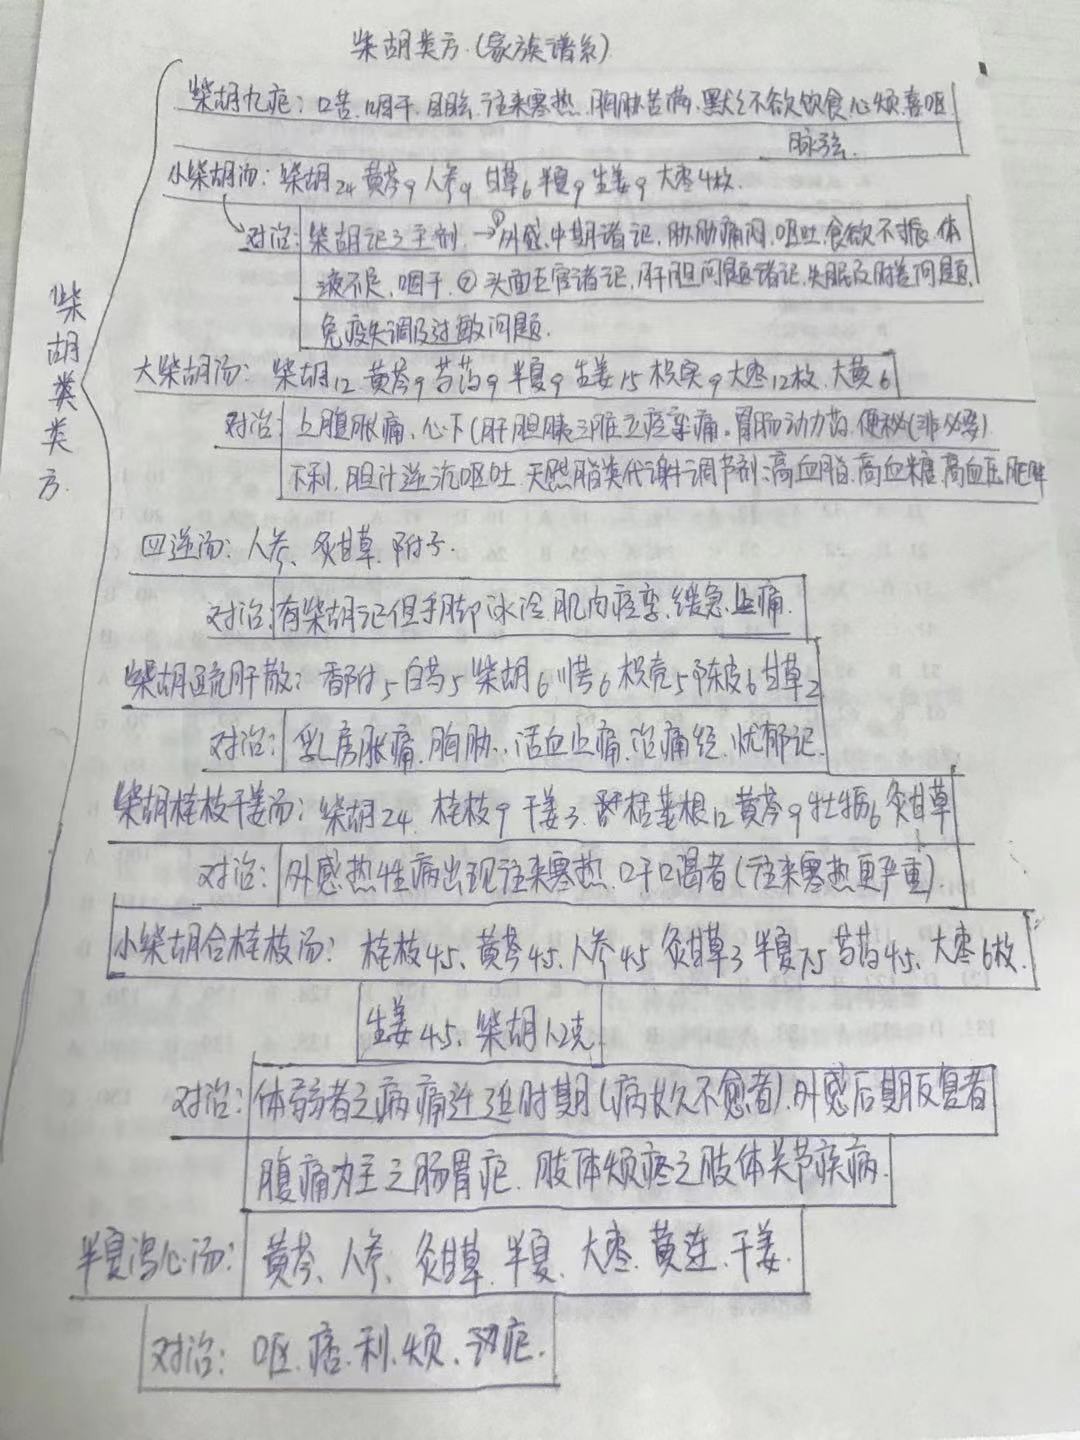 柴胡类方.(家族谱系)
柴胡九症：口苦.咽干.目眩.往来寒热.胸胁苦满.默々不欲饮食.心烦.喜呕.
脉弦.
小柴胡汤：柴胡24 黄芩9 人参9 甘草6 半夏9 生姜9 大枣4枚.
对治：柴胡证之主剂.→①外感.中期诸证.胁肋痛闷.呕吐.食欲不振.体
液不足.咽干.②头面五官诸证.肝胆问题诸证.失眠及肺差问题.
免疫失调及过敏问题.
大柴胡汤：柴胡12 黄芩9 芍药9 半夏9 生姜15 枳实9 大枣12枚.大黄6
对治：上腹胀痛、心下(肝胆胰三脏)痉挛痛.胃肠动力药.便秘(非必要)
不利.胆汁逆流呕吐.天然脂类代谢调节剂:高血脂.高血糖.高血压.肥胖
四逆汤：人参、炙甘草.附子.
对治：有柴胡证但手脚冰冷.肌肉痉挛.缓急.止痛.
柴胡疏肝散：香附5 白芍5 柴胡6 川芎6 枳壳5 陈皮6 甘草2
对治：乳房胀痛.胸胁..活血止痛.治痛经.忧郁证.
柴胡桂枝干姜汤：柴胡24 桂枝9 干姜3 栝蒌根12 黄芩9 牡蛎6 炙甘草
对治：外感热性病出现往来寒热.口干口渴者(往来寒热更严重).
小柴胡合桂枝汤：桂枝4.5、黄芩4.5、人参4.5 炙甘草3 半夏7.5 芍药4.5、大枣6枚.
生姜4.5、柴胡12克
对治：体弱者之病痛迁延时期(病长久不愈者).外感后期反复者
腹痛为主之肠胃症.肢体烦疼之肢体关节疾病.
半夏泻心汤：黄芩、人参、炙甘草.半夏、大枣.黄连.干姜.
对治：呕.痞.利.烦、症.
柴
胡
类
类
方.